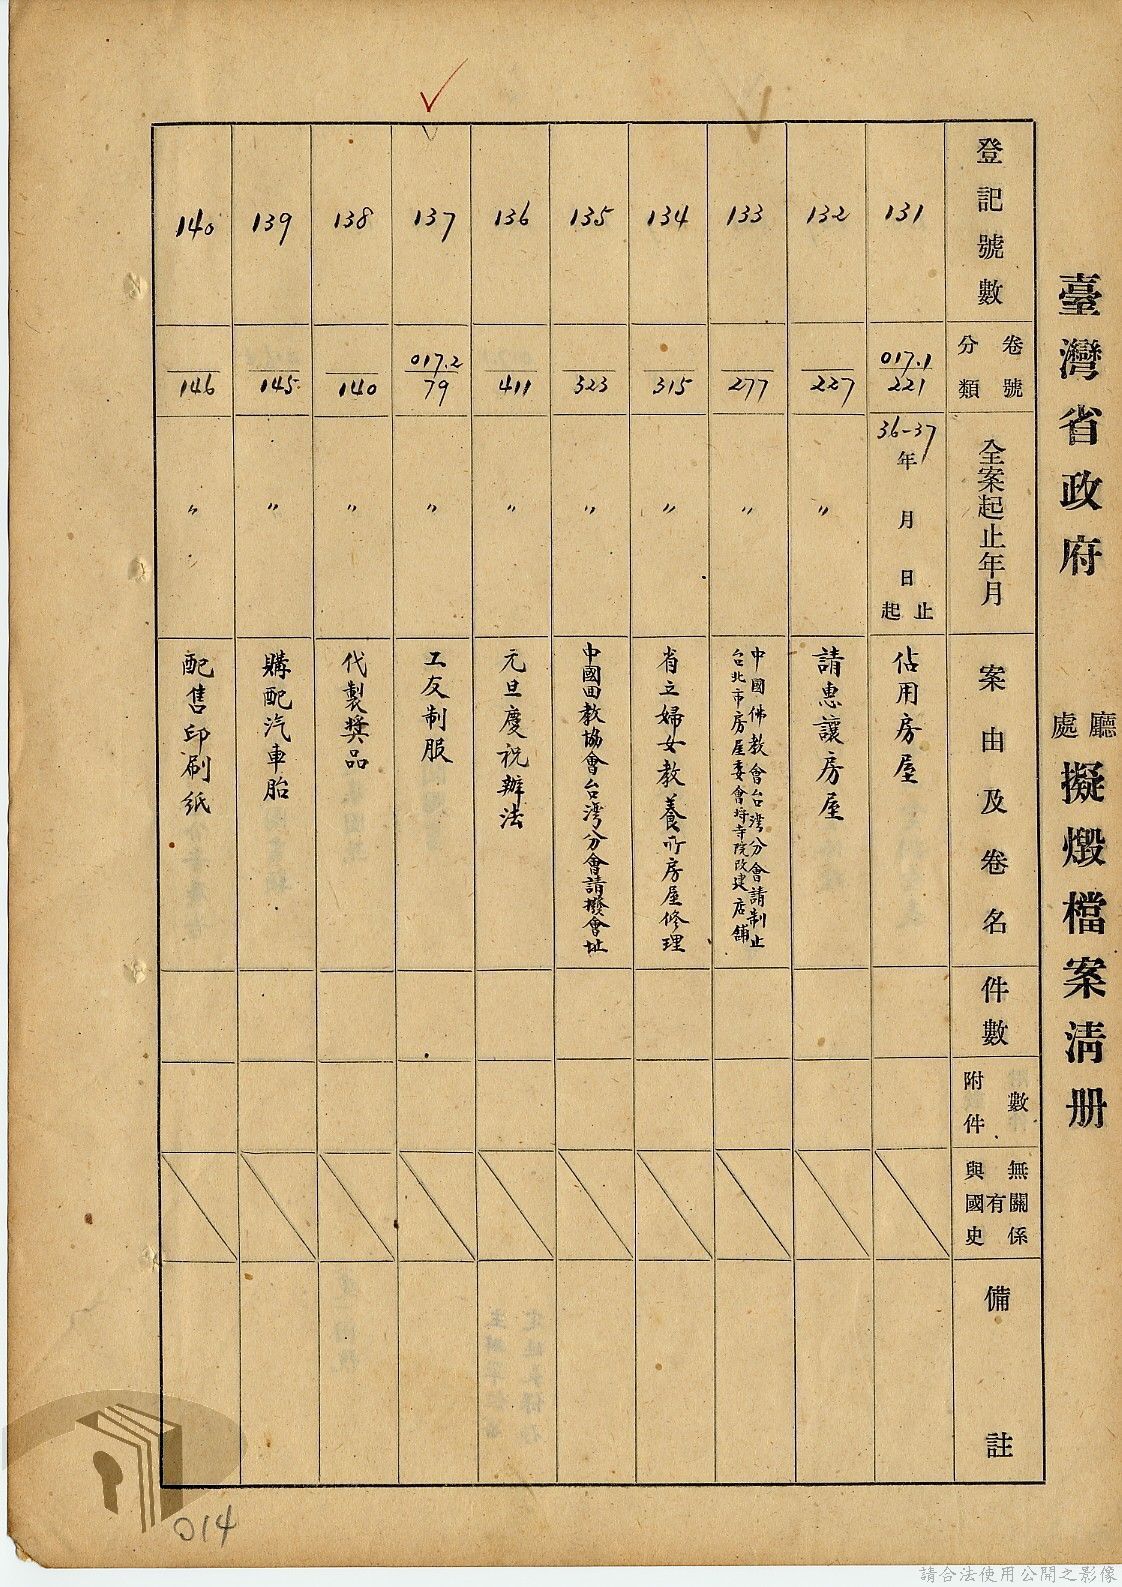 臺灣省政府 廳處擬燬檔案清册
登記號數
卷號
分類
全案起止年月
案由及卷名
件數
附件數
與國史有無關係
備註
131
017.1
221
36-37
年 月 日
起止
佔用房屋
132
227
〃
請惠讓房屋
133
277
〃
中國佛教會台灣分會請制止
台北市房屋委會將寺院改建店舖
134
315
〃
省立婦女教養所房屋修理
135
323
〃
中國回教協會台灣分會請撥會址
136
411
〃
元旦慶祝辦法
137
017.2
79
〃
工友制服
138
140
〃
代製獎品
139
145
〃
購配汽車胎
140
146
〃
配售印刷紙
014
請合法使用公開之影像